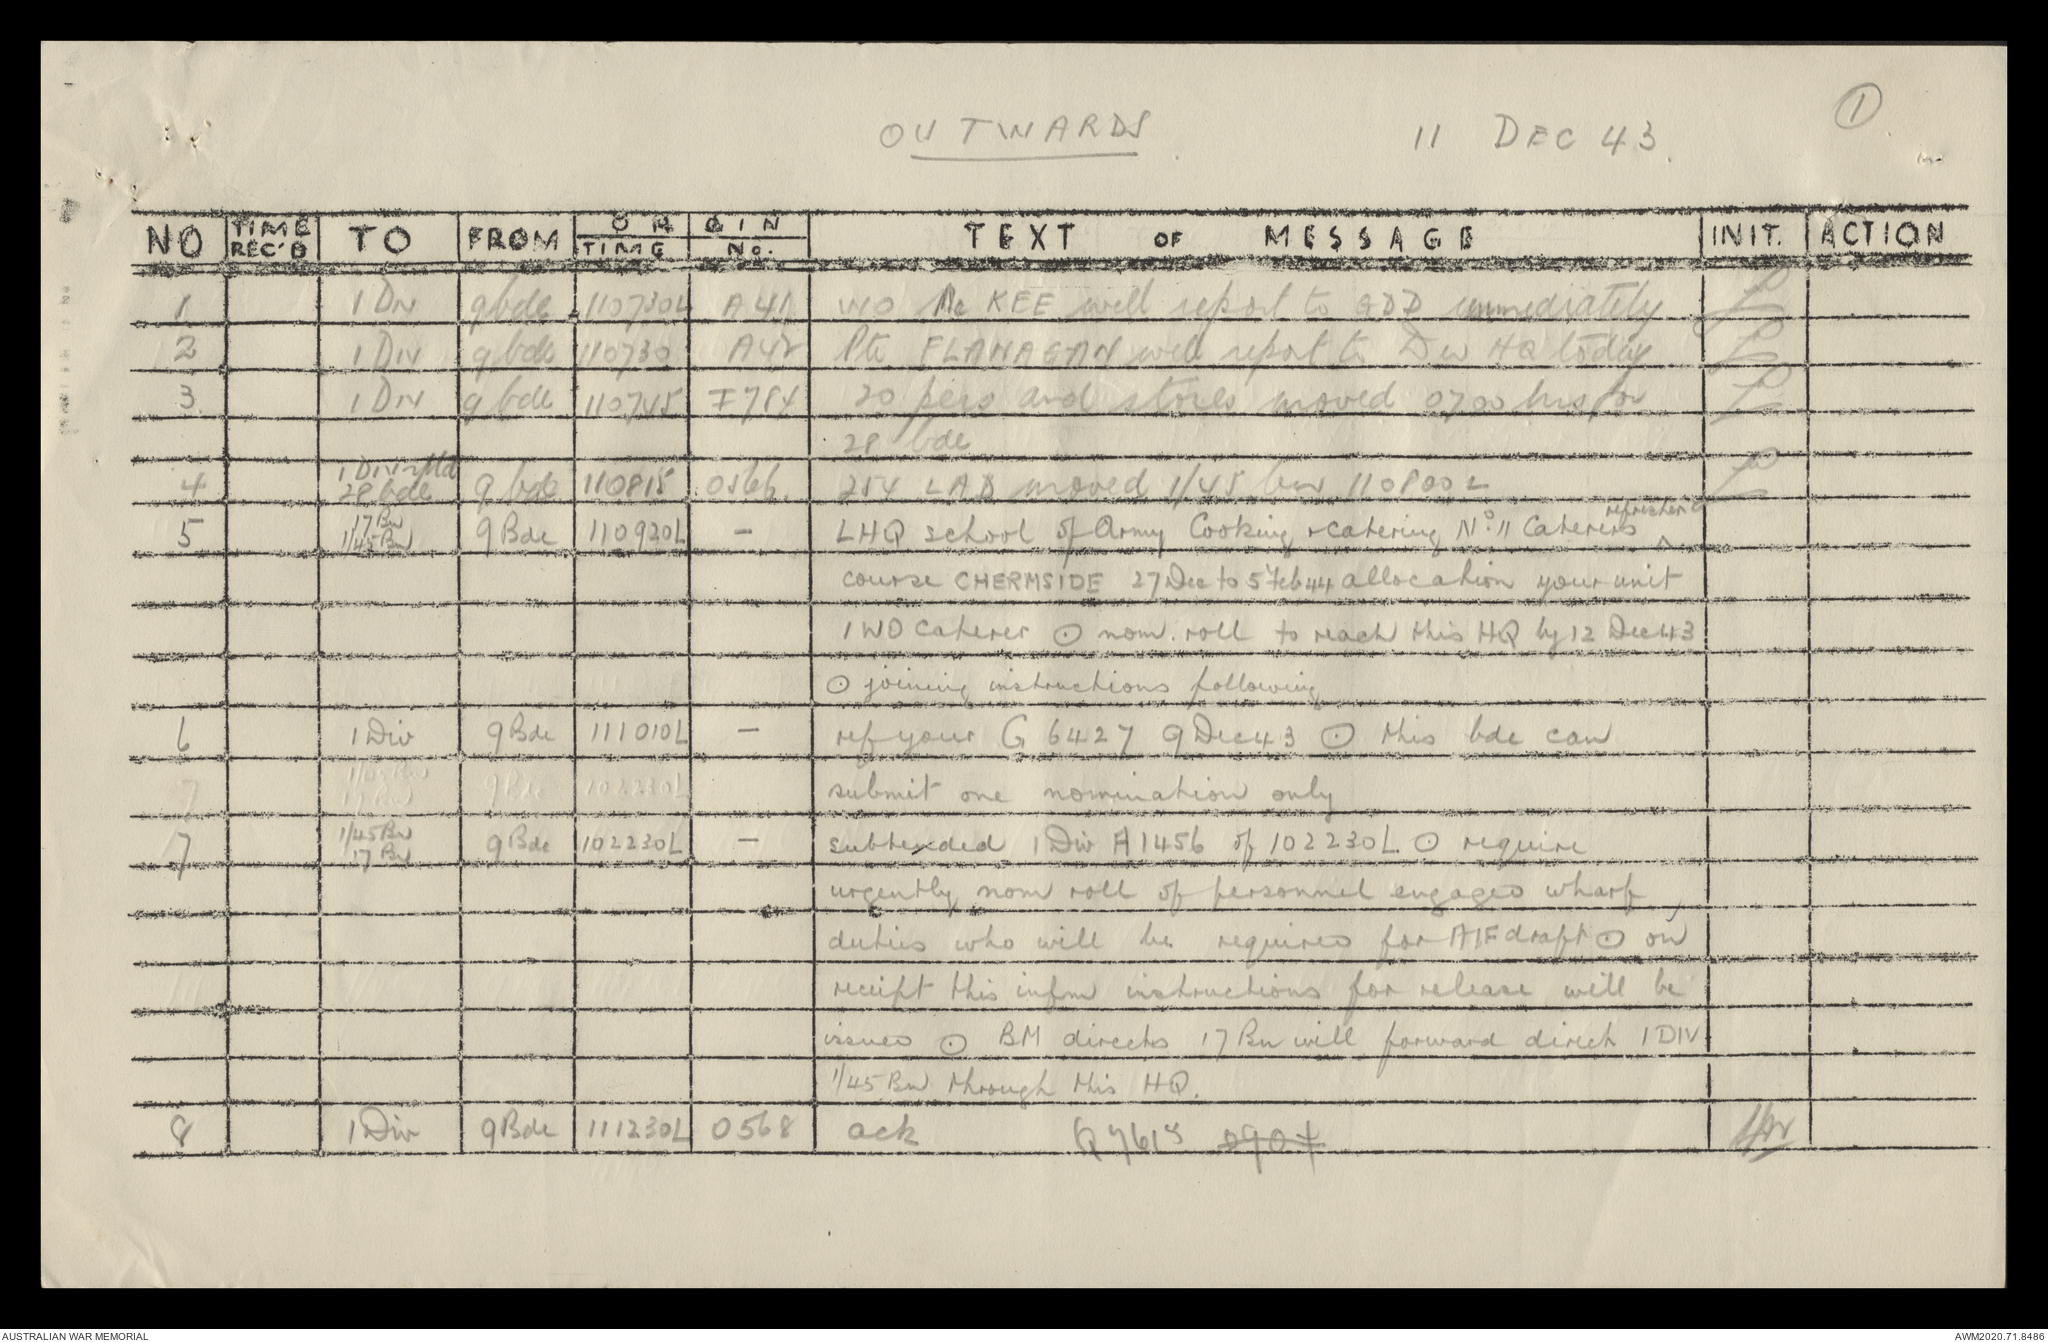 1
OUTWARDS 11 DEC 43.
NO TIME REC'D TO FROM ORIGIN TIME No. TEXT OF MESSAGE INIT. ACTION
1 1 Div 9 bde 110730L A 41 WO McKEE will report to GDD immediately
2 1 DIV 9 bde 110730 A42 Pte FLANAGAN will report to Div HQ today
3 1 Div 9 bde 110745 I 784 20 pers and stores moved 0700 hrs for
28 bde
1 DIV rptd
4 28 bde 9 bde 110815 0566. 254 LAD moved 1/45 bn 110800L
refresher
17 Bn
5 1/45 Bn 9 Bde 110920L - LHQ school of Army Cooking & catering No. 11 Caterers
course CHERMSIDE 27 Dec to 5 Feb 44 allocation your unit
1 WO caterer ⊙ nom. roll to reach this HQ by 12 Dec 43
⊙ joining instructions following
6 1 Div 9 Bde 111010L - ref your G 6427 9 Dec 43 ⊙ this bde can
1/45 Bn
7 17 Bn 9 Bde 102230L submit one nomination only
1/45 Bn
7 17 Bn 9 Bde 102230L - subtended 1 Div A1456 of 102230L ⊙ require
urgently nom roll of personnel engaged wharf
duties who will be required for AIF draft ⊙ on
receipt this infm instructions for release will be
issued ⊙ BM directs 17 Bn will forward direct 1 DIV
1/45 Bn through this HQ.
8 1 Div 9 Bde 111230L 0568 ack Q 7615 0904
AUSTRALIAN WAR MEMORIAL AWM2020.71.8486